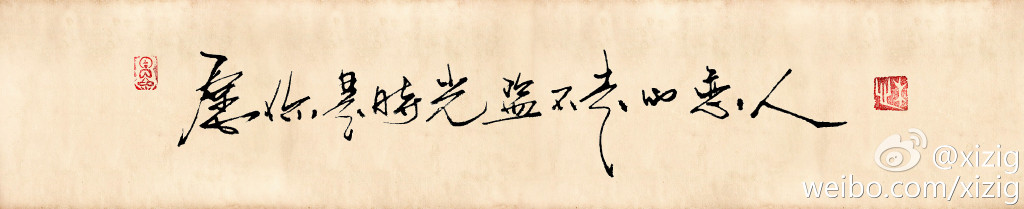 愿你是时光盗不走的恋人
@xizig
weibo.com/xizig